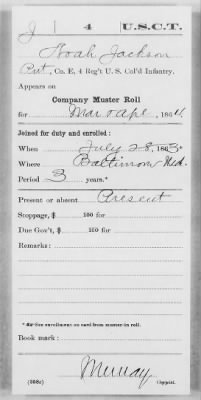 J 4 U.S.C.T.
Noah Jackson
Pvt, Co. E, 4 Reg't U. S. Col'd Infantry.
Appears on
Company Muster Roll
for Mar & Apl, 1864.
Joined for duty and enrolled:
When July 28, 1863*
Where Baltimore Md.
Period 3 years.*
Present or absent Present
Stoppage, $ 100 for
Due Gov't, $ 100 for
Remarks:
* See enrollment on card from muster-in roll.
Book mark:
Murray
(358c) Copyist.